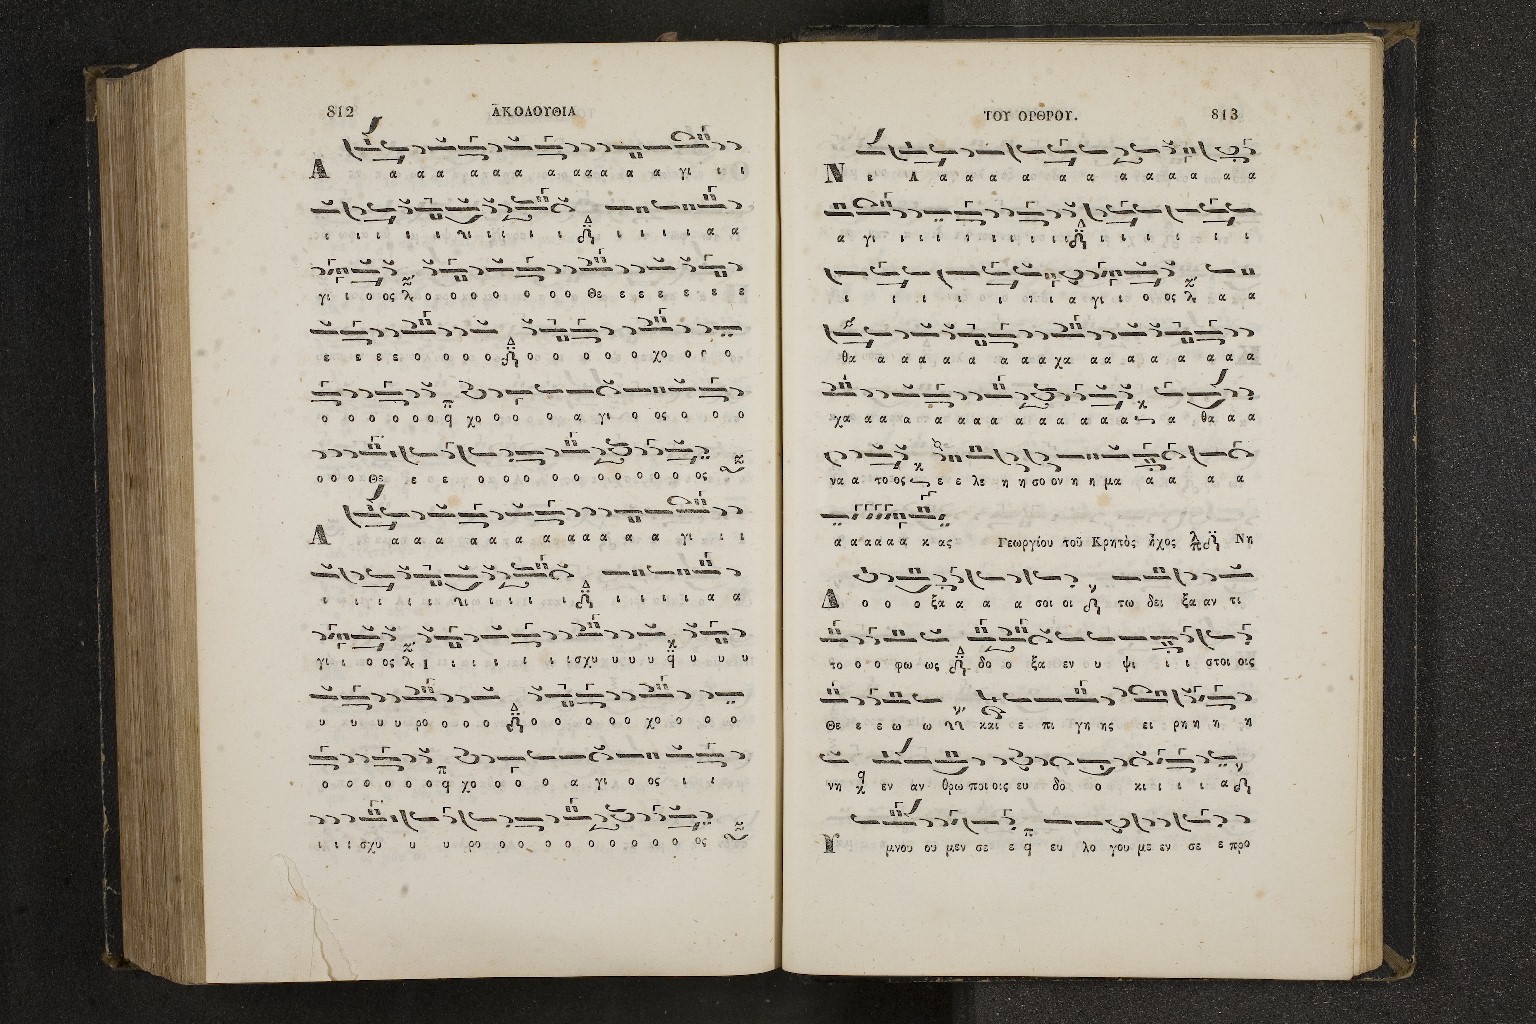 812 ἈΚΟΛΟΥΘΙΑ
Α α α α α α α α α α α α α α γι ι ι
ι ι ι ι ι ι ι ι ι ι ι ι ι ι α α
γι ι ο ος ο ο ο ο ο ο ο ο Θε ε ε ε ε ε ε
ε ε ε ε ο ο ο ο ο ο ο ο ο ο χο ο ο ο
ο ο ο ο ο ο χο ο ο ο α γι ο ος ο ο ο
ο ο ο Θε ε ε ο ο ο ο ο ο ο ο ο ο ο ος
Α α α α α α α α α α α α α α γι ι ι
ι ι ι ι ι ι ι ι ι ι ι ι ι ι α α
γι ι ο ος Ι ι ι ι ι ι ι ισχυ υ υ υ υ υ υ
υ υ υ υ ρο ο ο ο ο ο ο ο ο ο χο ο ο ο
ο ο ο ο ο ο χο ο ο ο α γι ο ος ι ι
ι ι ι σχυ υ υ ρο ο ο ο ο ο ο ο ο ο ο ος
ΤΟΥ ΟΡΘΡΟΥ. 813
Ν ε Α α α α α α α α α α α α α
α γι ι ι ι ι ι ι ι ι ι ι ι ι ι ι ι
ι ι ι ι ι ι α γι ι ο ος α α
θα α α α α α α α α χα α α α α α α α α
χα α α α α α α α α α α α α α α θα α α
να α το ος ε ε λε η η σο ον η η μα α α α α
α α α α α α κ ας Γεωργίου τοῦ Κρητὸς ἦχος Νη
Δ ο ο ο ξα α α α α σοι οι τω δει ξα αν τι
το ο ο φω ως δο ο ξα εν υ ψι ι ι στοι οις
Θε ε ε ω ω και ε πι γη ης ει ρη η η η
νη εν αν θρω ποι οις ευ δο ο κι ι ι ι α
Υ μνου ου μεν σε ε ευ λο γου με εν σε ε προ